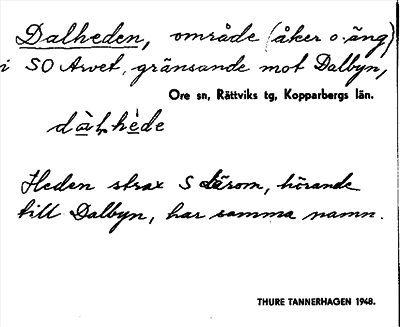 Dalheden, område (åker o. äng)
i SO Arvet, gränsande mot Dalbyn,
Ore sn, Rättviks tg, Kopparbergs län.
Heden strax S därom, hörande
till Dalbyn, har samma namn.
THURE TANNERHAGEN 1948.